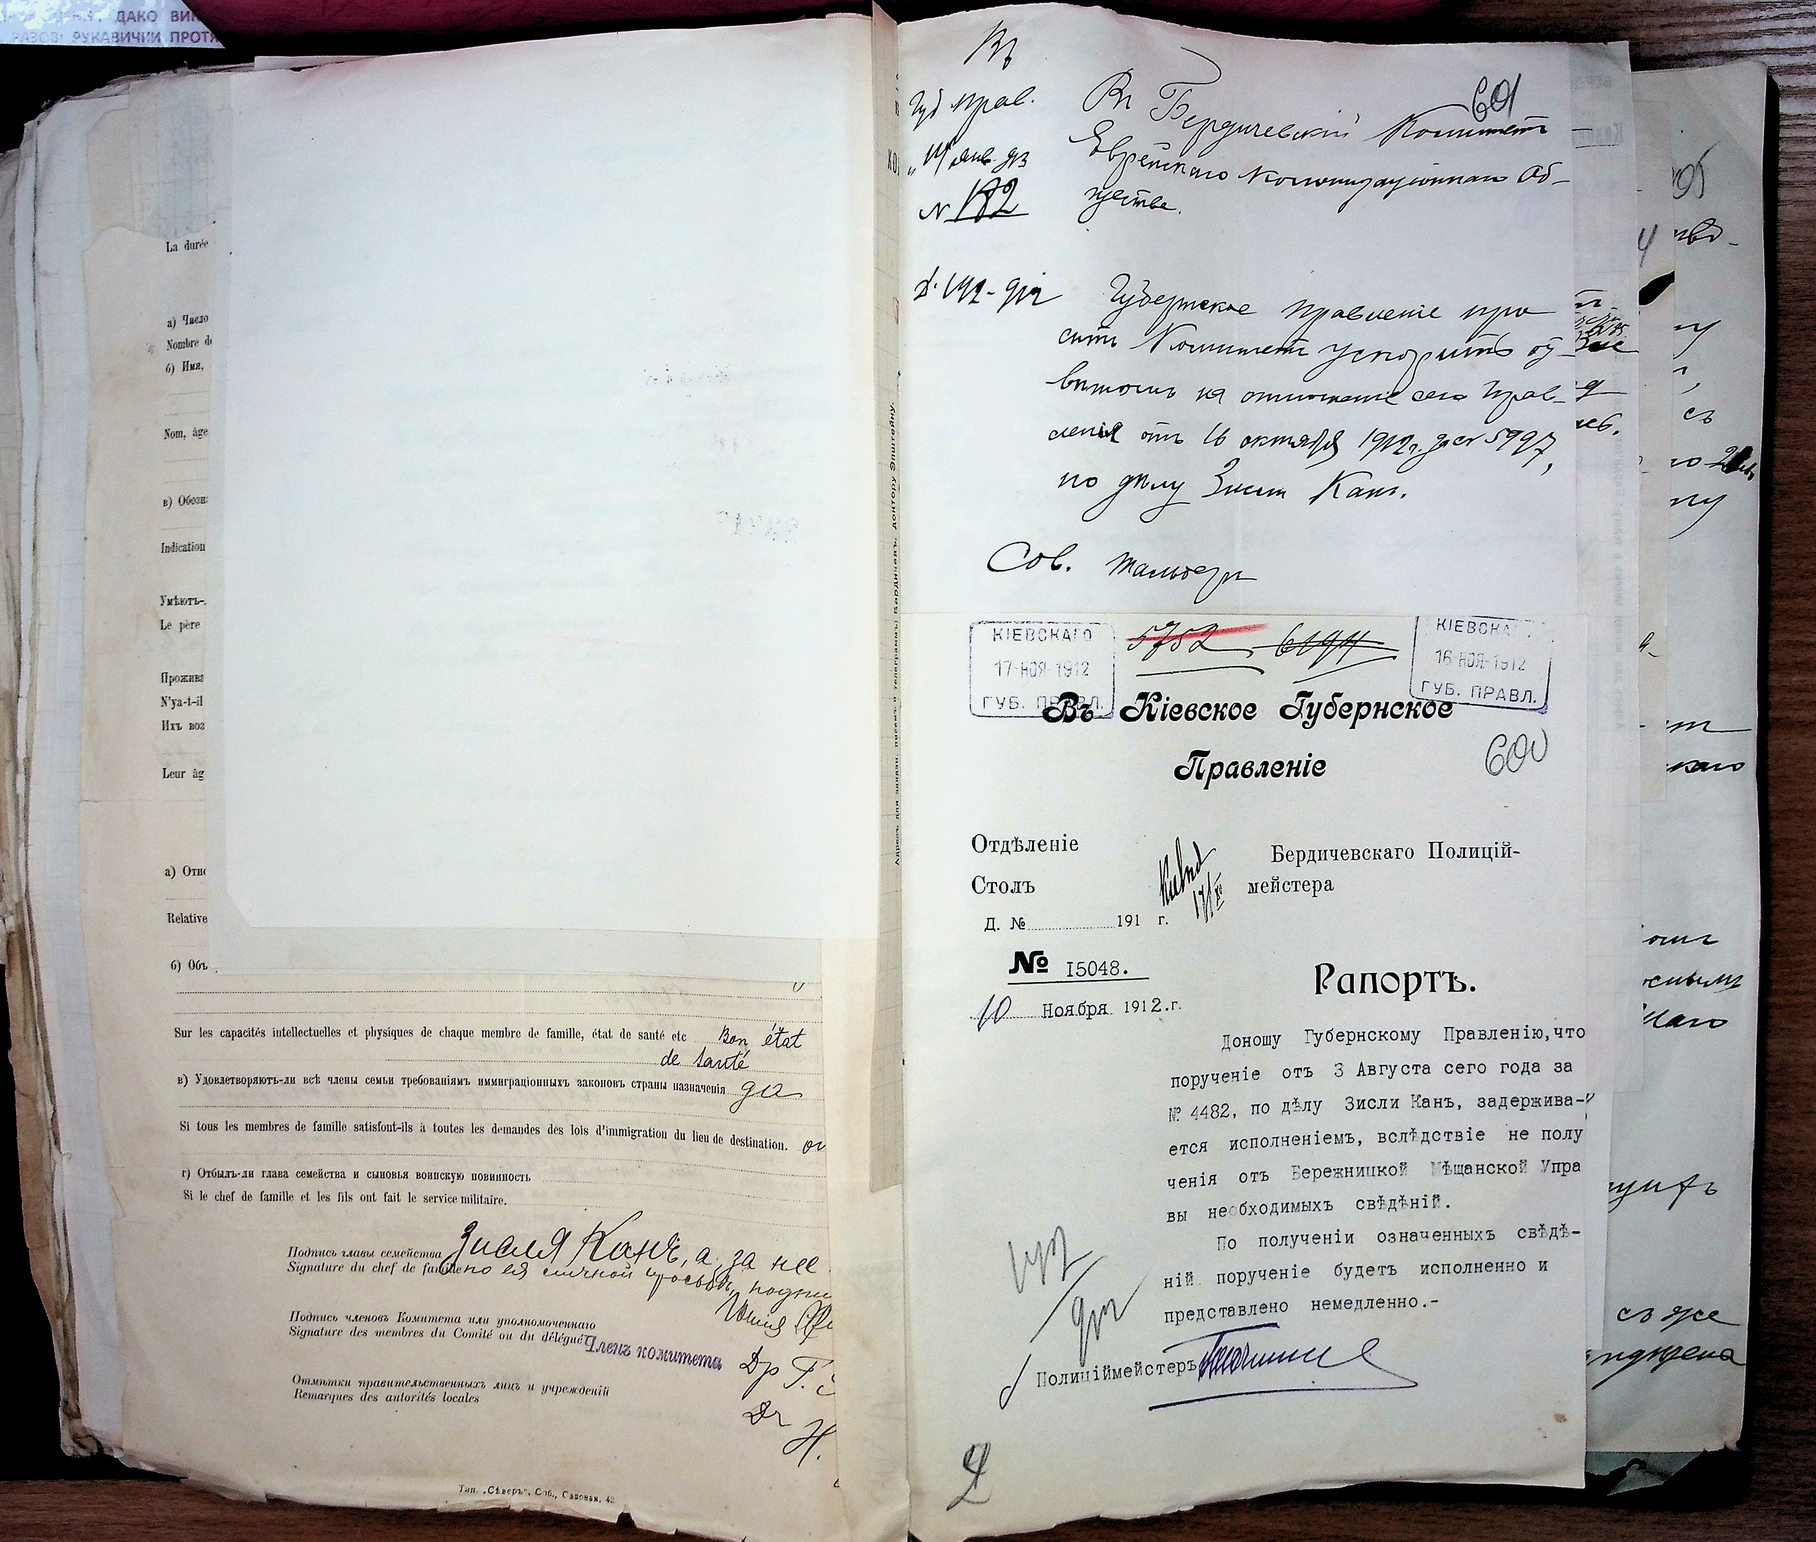 ДАКО
РУКАВИЧКИ
La durée
а) Число
Nombre
б) Имя,
Nom, âge
в)
Indication
Умѣютъ-
Le père
N'ya-t-il
Ихъ воз
Leur âg
а)
Relative
б) Объ
Sur les capacités intellectuelles et physiques de chaque membre de famille, état de santé etc Bon état
de santé
в) Удовлетворяютъ-ли всѣ члены семьи требованіямъ иммиграціонныхъ законовъ страны назначенія да
Si tous les membres de famille satisfont-ils à toutes les demandes des lois d'immigration du lieu de destination.
г) Отбылъ-ли глава семейства и сыновья воинскую повинность
Si le chef de famille et les fils ont fait le service militaire.
Подпись главы семейства Зисля Канъ, а за нее
Signature du chef de famille по ея личной просьбѣ
Подпись членовъ Комитета или уполномоченнаго
Signature des membres du Comité ou du délégué Членъ комитета
Др Г.
Отмѣтки правительственныхъ лицъ и учрежденій
Remarques des autorités locales
Dr
Н.
Тип. „Сѣверъ“, Спб., Садовая, 42
Адресъ для заказн. писемъ и телеграммъ: Бердичевъ, доктору Эпштейну.
601
Губ. Прав.
№ 182
Въ Бердичевскій Комитетъ
Еврейскаго Колонизаціоннаго Об-
щества.
Губернское Правленіе про
ситъ Комитетъ ускорить от
вѣтомъ на отношеніе сего Прав-
ленія отъ 16 октября 1912 г. за № 5997,
по дѣлу Зисли Канъ.
Сов.
КІЕВСКАГО
17 НОЯ 1912
ГУБ. ПРАВЛ.
5752
КІЕВСКАГО
16 НОЯ 1912
ГУБ. ПРАВЛ.
Въ Кіевское Губернское
Правленіе
600
Отдѣленіе
Столъ
Д. № 191 г.
Бердичевскаго Полицій-
мейстера
№ I5048.
10 Ноября 1912.г.
Рапортъ.
Доношу Губернскому Правленію,что
порученіе отъ 3 Августа сего года за
№ 4482, по дѣлу Зисли Канъ, задержива-
ется исполненіемъ, вслѣдствіе не полу
ченія отъ Бережницкой Мѣщанской Упра
вы необходимыхъ свѣдѣній.
По полученіи означенныхъ свѣдѣ-
ній порученіе будетъ исполненно и
представлено немедленно.-
Полиціймейстеръ